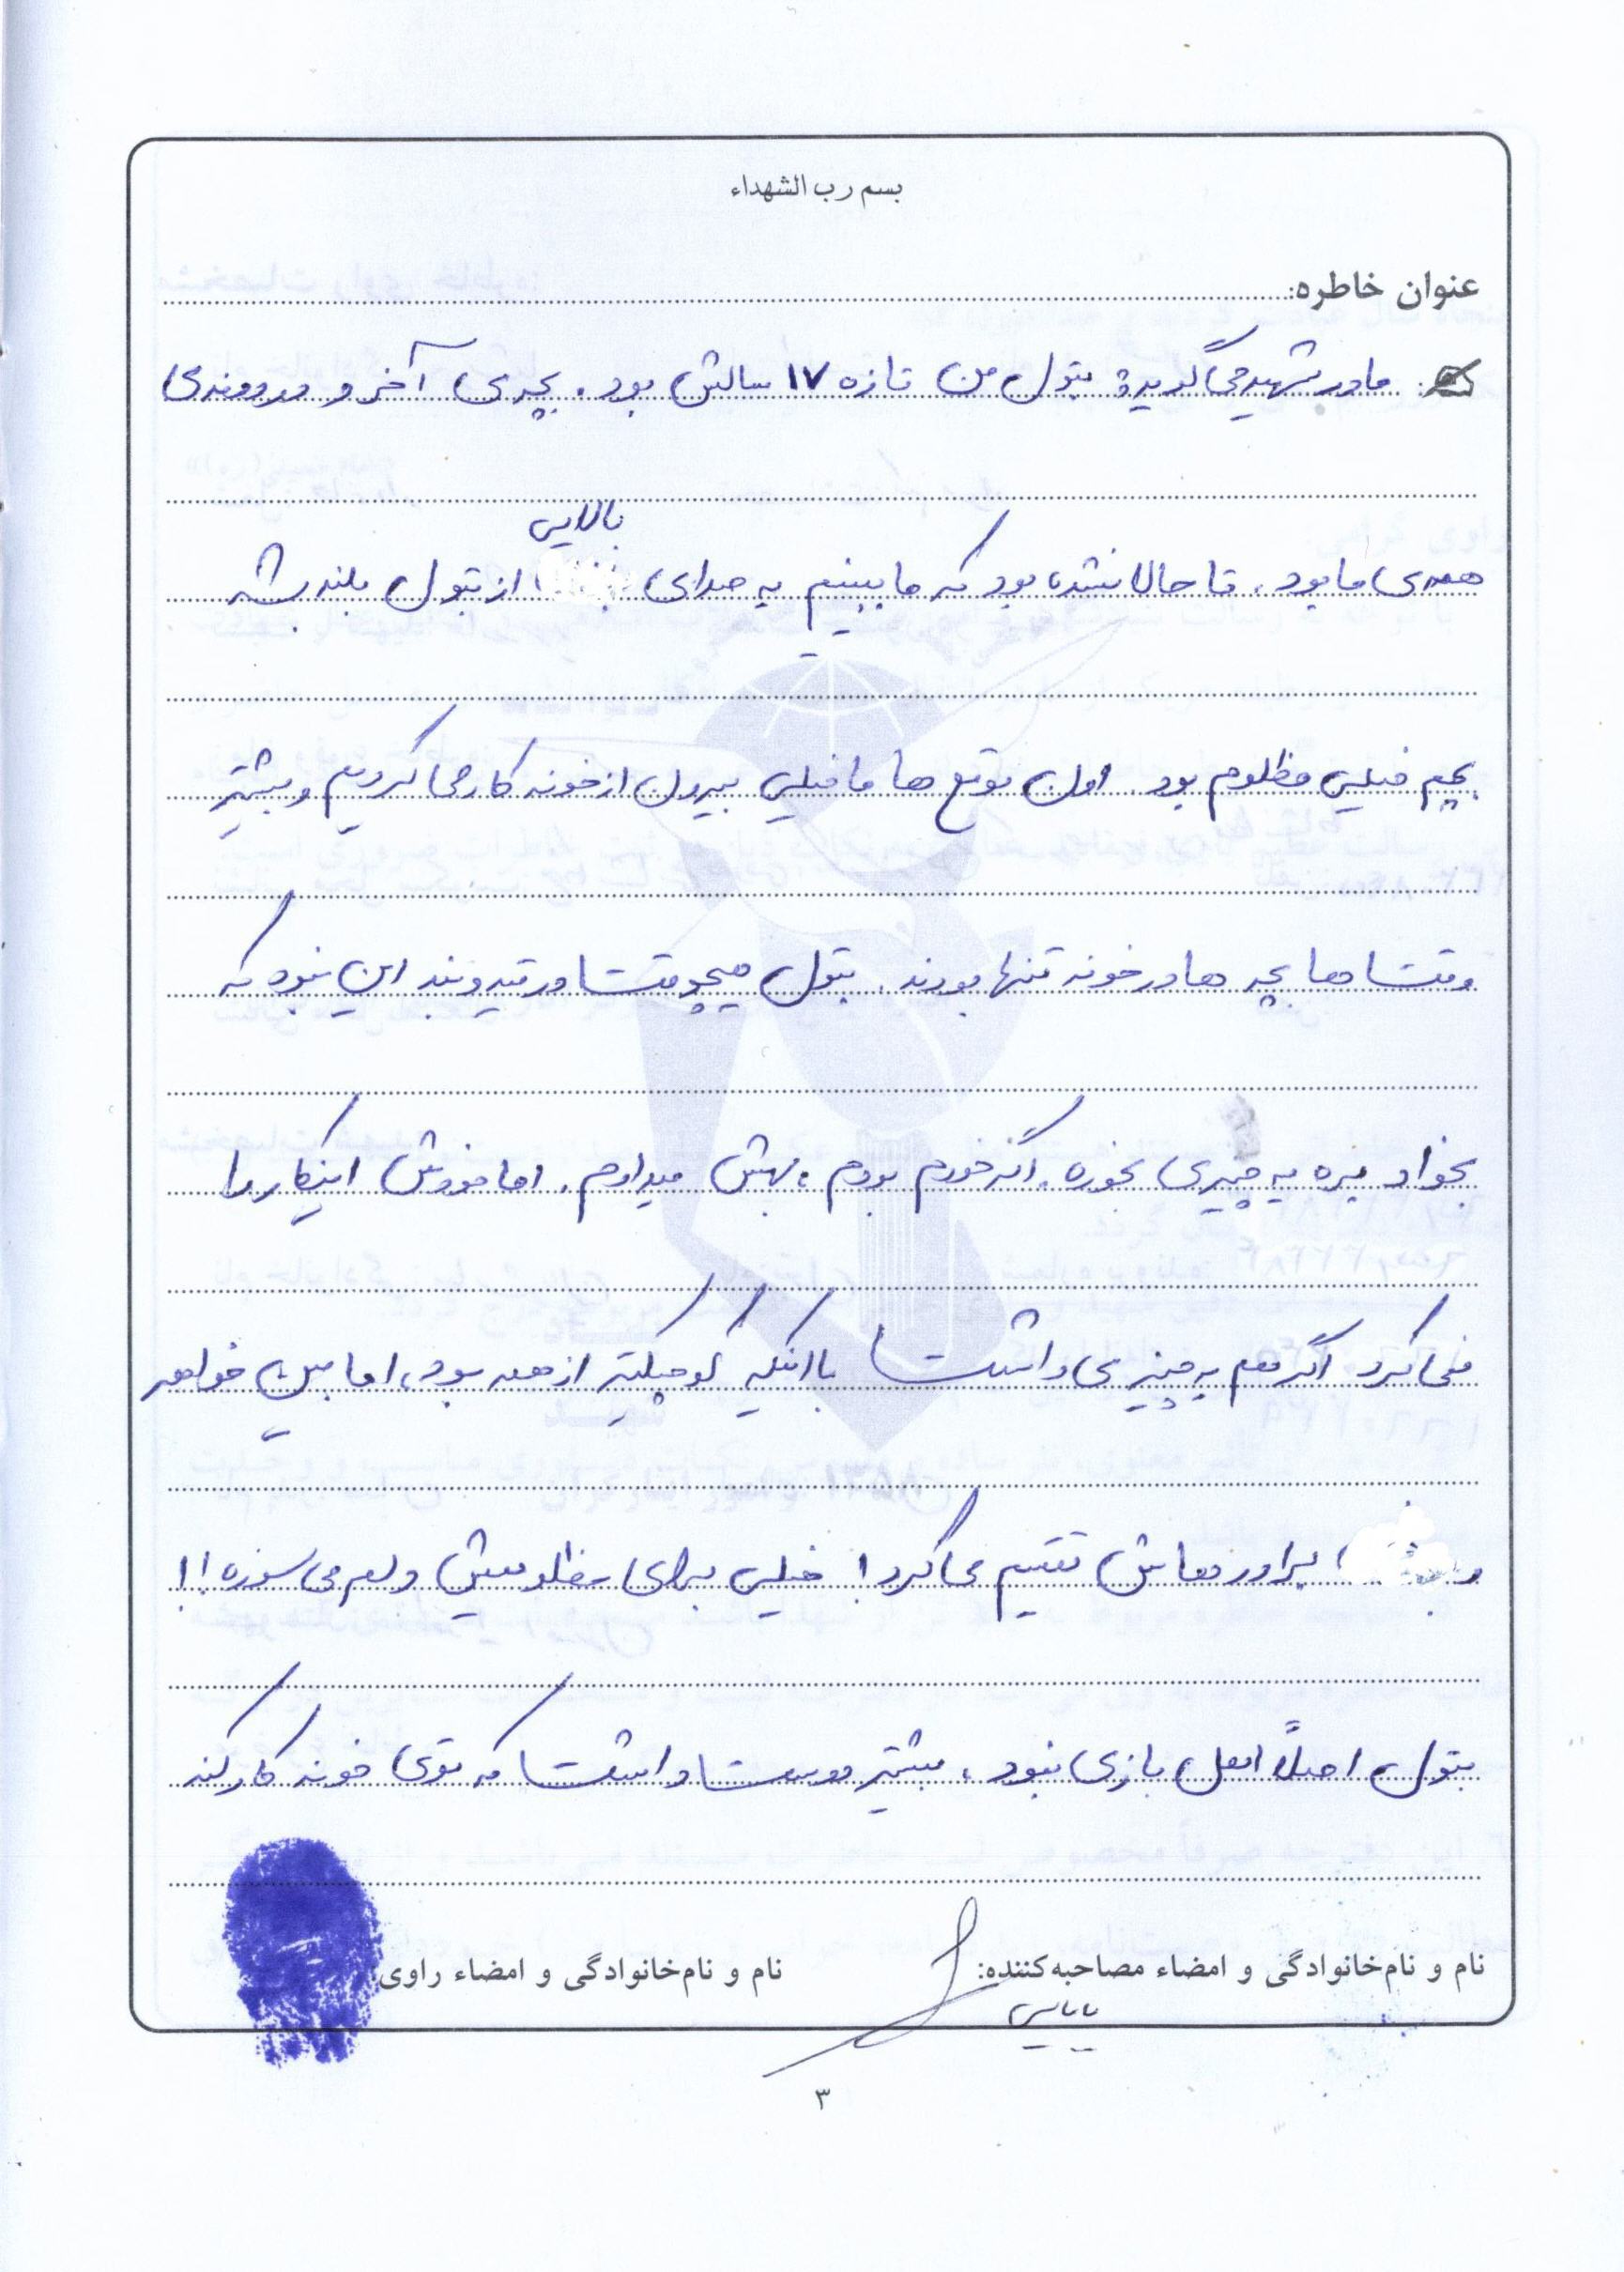 بسم رب الشهداء
عنوان خاطره:
مادر شهید می گوید: بتول من تازه ۱۷ سالش بود. بچه ی آخر و دردونه ی
بالایی
همه ی ما بود. تا حالا نشده بود که ما ببینیم یه صدای از بتول بلند بشه
بچم خیلی مظلوم بود. اون موقع ها ما خیلی بیرون از خونه کار می کردیم و بیشتر
وقت ها بچه ها در خونه تنها بودند. بتول هیچ وقت در قید و بند این نبود که
بخواد بره یه چیزی بخوره. اگر خودم بودم، بهش میدادم. اما خودش اینکار را
نمی کرد اگر هم یه چیزی داشت با اینکه کوچیکتر از همه بود، اما بین خواهر
و برادرهاش تقسیم می کرد! خیلی برای مظلومیتش دلم می سوزه!!
بتول اصلاً اهل بازی نبود، بیشتر دوست داشت که توی خونه کار کند
نام و نام‌خانوادگی و امضاء مصاحبه‌کننده:
نام و نام‌خانوادگی و امضاء راوی
بابایی
۳